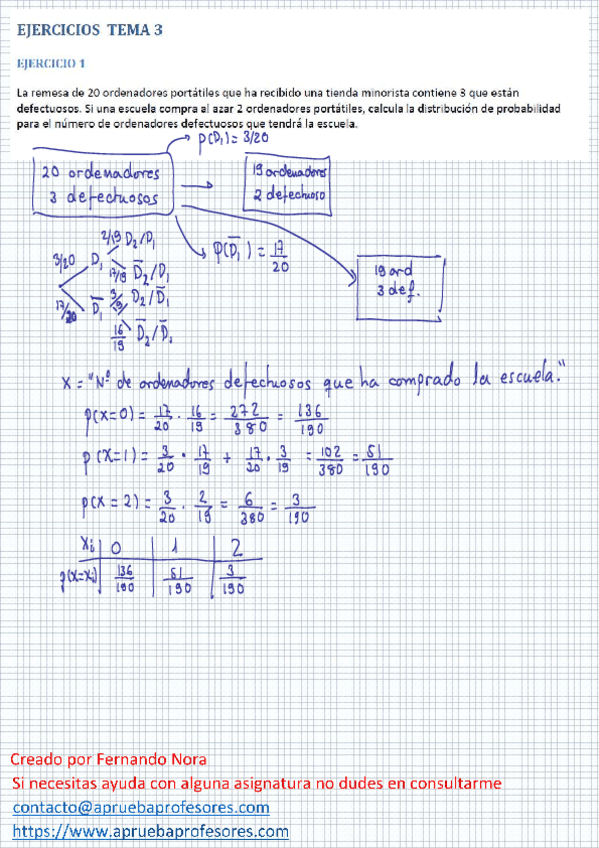 EJERCICIOS TEMA 3
EJERCICIO 1
La remesa de 20 ordenadores portátiles que ha recibido una tienda minorista contiene 3 que están
defectuosos. Si una escuela compra al azar 2 ordenadores portátiles, calcula la distribución de probabilidad
para el número de ordenadores defectuosos que tendrá la escuela.
P(D₁) = 3/20
20 ordenadores
3 defectuosos
19 ordenadores
2 defectuoso
P(D̅₁) = 17/20
19 ord
3 def.
3/20 D₁ 2/19 D₂/D₁
17/19 D̅₂/D₁
17/20 D̅₁ 3/19 D₂/D̅₁
16/19 D̅₂/D̅₁
X = "Nº de ordenadores defectuosos que ha comprado la escuela."
p(x=0) = 17/20 · 16/19 = 272/380 = 136/190
p(x=1) = 3/20 · 17/19 + 17/20 · 3/19 = 102/380 = 51/190
p(x=2) = 3/20 · 2/19 = 6/380 = 3/190
xi 0 1 2
p(x=xi) 136/190 51/190 3/190
Creado por Fernando Nora
Si necesitas ayuda con alguna asignatura no dudes en consultarme
contacto@apruebaprofesores.com
https://www.apruebaprofesores.com